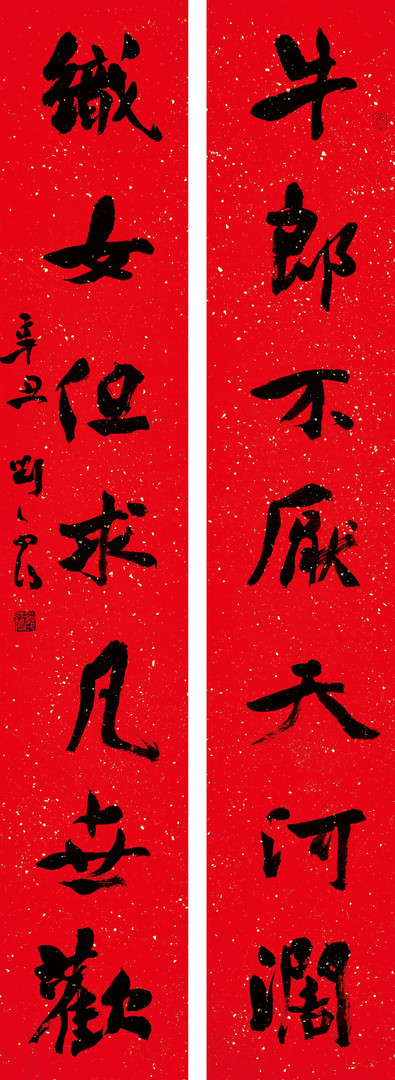 牛郎不厭天河闊
織女但求凡世歡
辛丑 劉